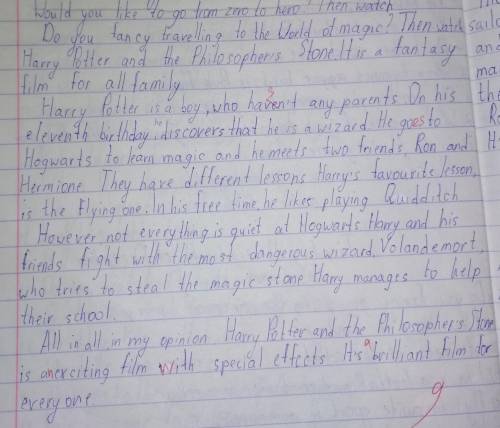 Would you like to go from zero to hero? Then watch
Do you fancy travelling to the World of magic? Then watch
Harry Potter and the Philosopher's Stone. It is a fantasy
film for all family.
Harry Potter is a boy, who haven't any parents. On his
eleventh birthday he discovers that he is a wizard. He goes to
Hogwarts to learn magic and he meets two friends, Ron and
Hermione. They have different lessons. Harry's favourite lesson,
is the flying one. In his free time, he likes playing Quidditch
However, not everything is quiet at Hogwarts. Harry and his
friends fight with the most dangerous wizard, Volandemort,
who tries to steal the magic stone. Harry manages to help
their school.
All in all, in my opinion Harry Potter and the Philosopher's Stone
is an exciting film with special effects. It's a brilliant film for
everyone.
9